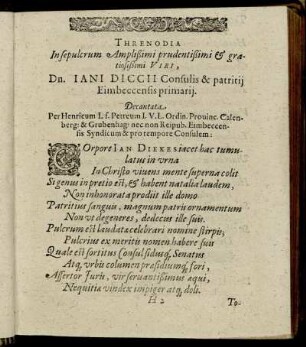 THRENODIA
In sepulcrum Amplissimi prudentissimi & gra-
tiosissimi VIRI,
Dn. IANI DICCII Consulis & patritij
Eimbeccensis primarij.
Decantata
Per Henricum I. f. Petreum I. V. L. Ordin. Provinc. Calen-
berg: & Grubenhag: nec non Reipub. Eimbeccen-
sis Syndicum & pro tempore Consulem:
COrpore IAN DIEKES iacet hac tumu-
latus in vrna
In Christo viuens mente superna colit
Si genus in pretio est, & habent natalia laudem,
Non inhonorata prodiit ille domo
Patritius sanguis, magnum patris ornamentum
Non vt degeneres, dedecus ille suis.
Pulcrum est laudata celebrari nomine stirpis;
Pulcrius ex meritis nomen habere suis
Quale est sortitus Consulsidusq́; Senatus
Atq́; vrbis columen præsidiumq́; fori,
Assertor Iuris, vir seruantissimus æqui,
Nequitiæ vindex impiger atq́; doli.
H 2
To-